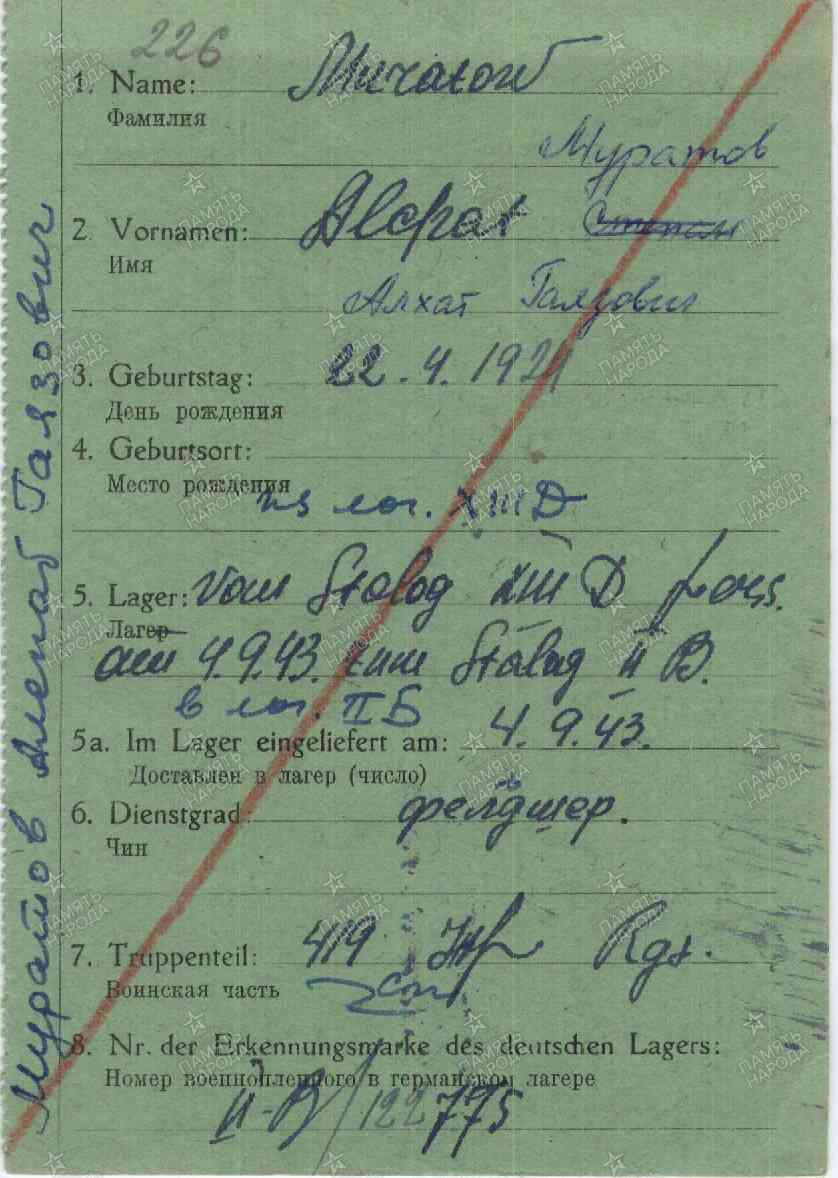 226
1. Name: Muratow
Фамилия
Муратов
2. Vornamen:
Имя
Алхат Гаязович
3. Geburtstag: 22.4.1921
День рождения
4. Geburtsort:
Место рождения
из лаг. XIII D
5. Lager: Vom Stalag XIII D
Лагер
am 4.9.43. zum Stalag II B.
в лаг. II Б
5a. Im Lager eingeliefert am: 4.9.43.
Доставлен в лагер (число)
6. Dienstgrad: фелдшер.
Чин
7. Truppenteil: 419 Inf Rgt.
Воинская часть
сп
8. Nr. der Erkennungsmarke des deutschen Lagers:
Номер военнопленного в германском лагере
II-B/122775
Муратов Гаязович
ПАМЯТЬ НАРОДА